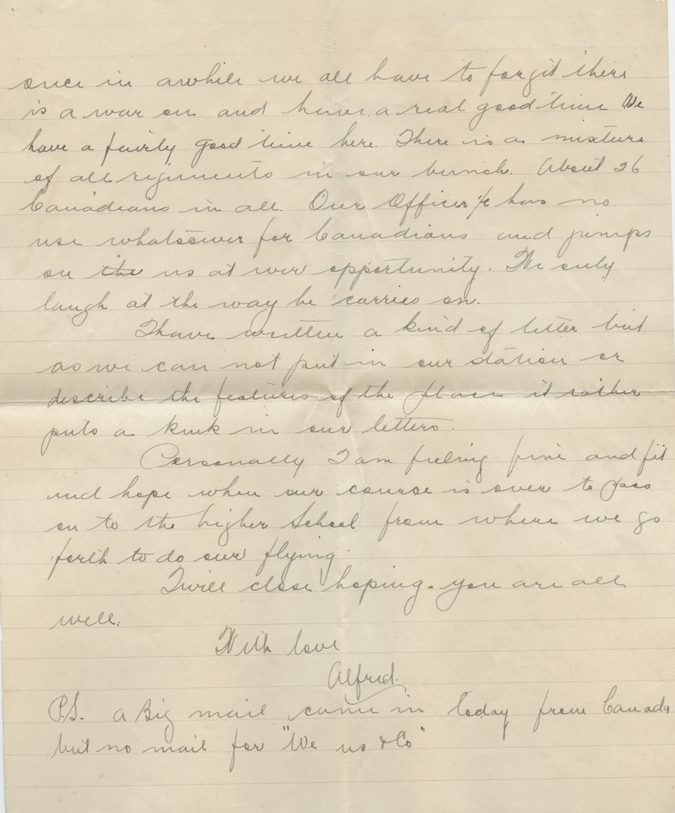 once in awhile we all have to forget there
is a war on and have a real good time We
have a fairly good time here. There is a mixture
of all regiments in our bunch. About 26
Canadians in all. Our Officer i/c has no
use whatsoever for Canadians and jumps
on the us at ever opportunity. We only
laugh at the way he carries on.
I have written a kind of letter but
as we can not put in our station or
describe the features of the place it rather
puts a kink in our letters.
Personally I am feeling fine and fit
and hope when our course is over to pass
on to the higher School from where we go
forth to do our flying.
I will close hoping you are all
well.
With love
Alfred.
P.S. a Big mail came in today from Canada
but no mail for "We us & Co"